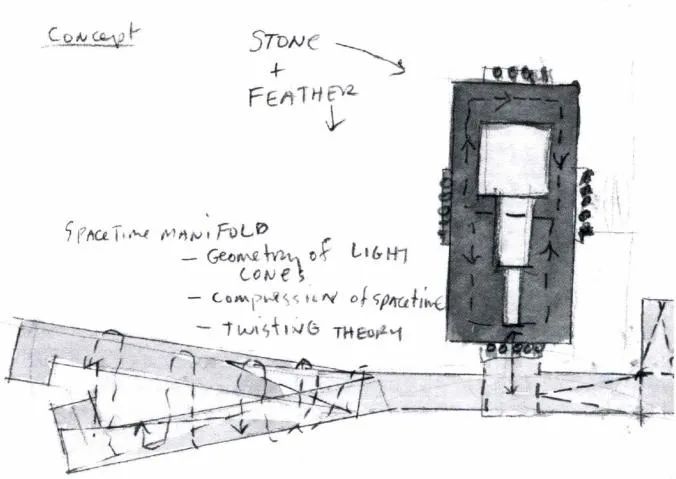 Concept
STONE
+
FEATHER
SPACETIME MANIFOLD
– Geometry of LIGHT
CONES
– Compression of spacetime
– TWISTING THEORY